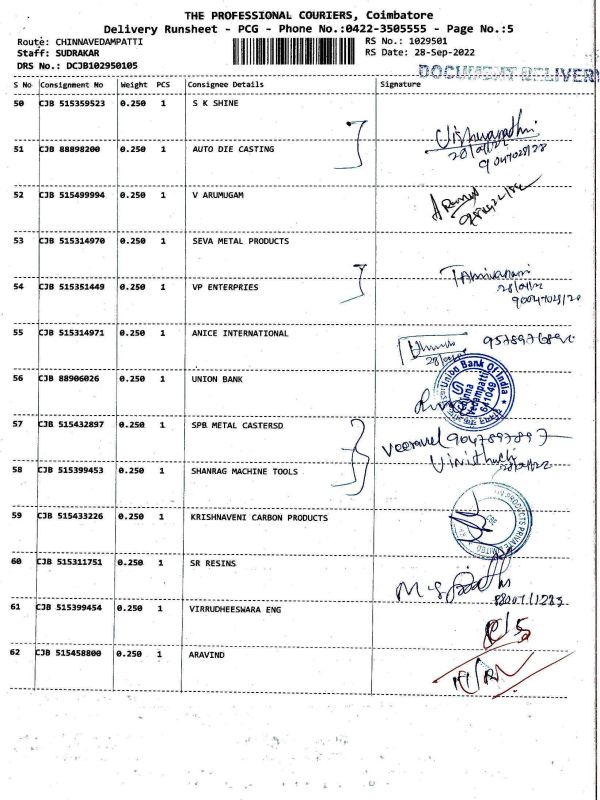 THE PROFESSIONAL COURIERS, Coimbatore
Delivery Runsheet - PCG - Phone No.:0422-3505555 - Page No.:5
Route: CHINNAVEDAMPATTI RS No.: 1029501
Staff: SUDRAKAR RS Date: 28-Sep-2022
DRS No.: DCJB102950105
DOCUMENT DELIVER
S No Consignment No Weight PCS Consignee Details Signature
50 CJB 515359523 0.250 1 S K SHINE
51 CJB 88898200 0.250 1 AUTO DIE CASTING
52 CJB 515499994 0.250 1 V ARUMUGAM
53 CJB 515314970 0.250 1 SEVA METAL PRODUCTS
54 CJB 515351449 0.250 1 VP ENTERPRIES
55 CJB 515314971 0.250 1 ANICE INTERNATIONAL
56 CJB 88906026 0.250 1 UNION BANK
Union Bank Of India
641049
57 CJB 515432897 0.250 1 SPB METAL CASTERSD
veeravel 9047897897
58 CJB 515399453 0.250 1 SHANRAG MACHINE TOOLS
59 CJB 515433226 0.250 1 KRISHNAVENI CARBON PRODUCTS
PRODUCTS PRIVATE LIMITED
60 CJB 515311751 0.250 1 SR RESINS
61 CJB 515399454 0.250 1 VIRRUDHEESWARA ENG
62 CJB 515458800 0.250 1 ARAVIND